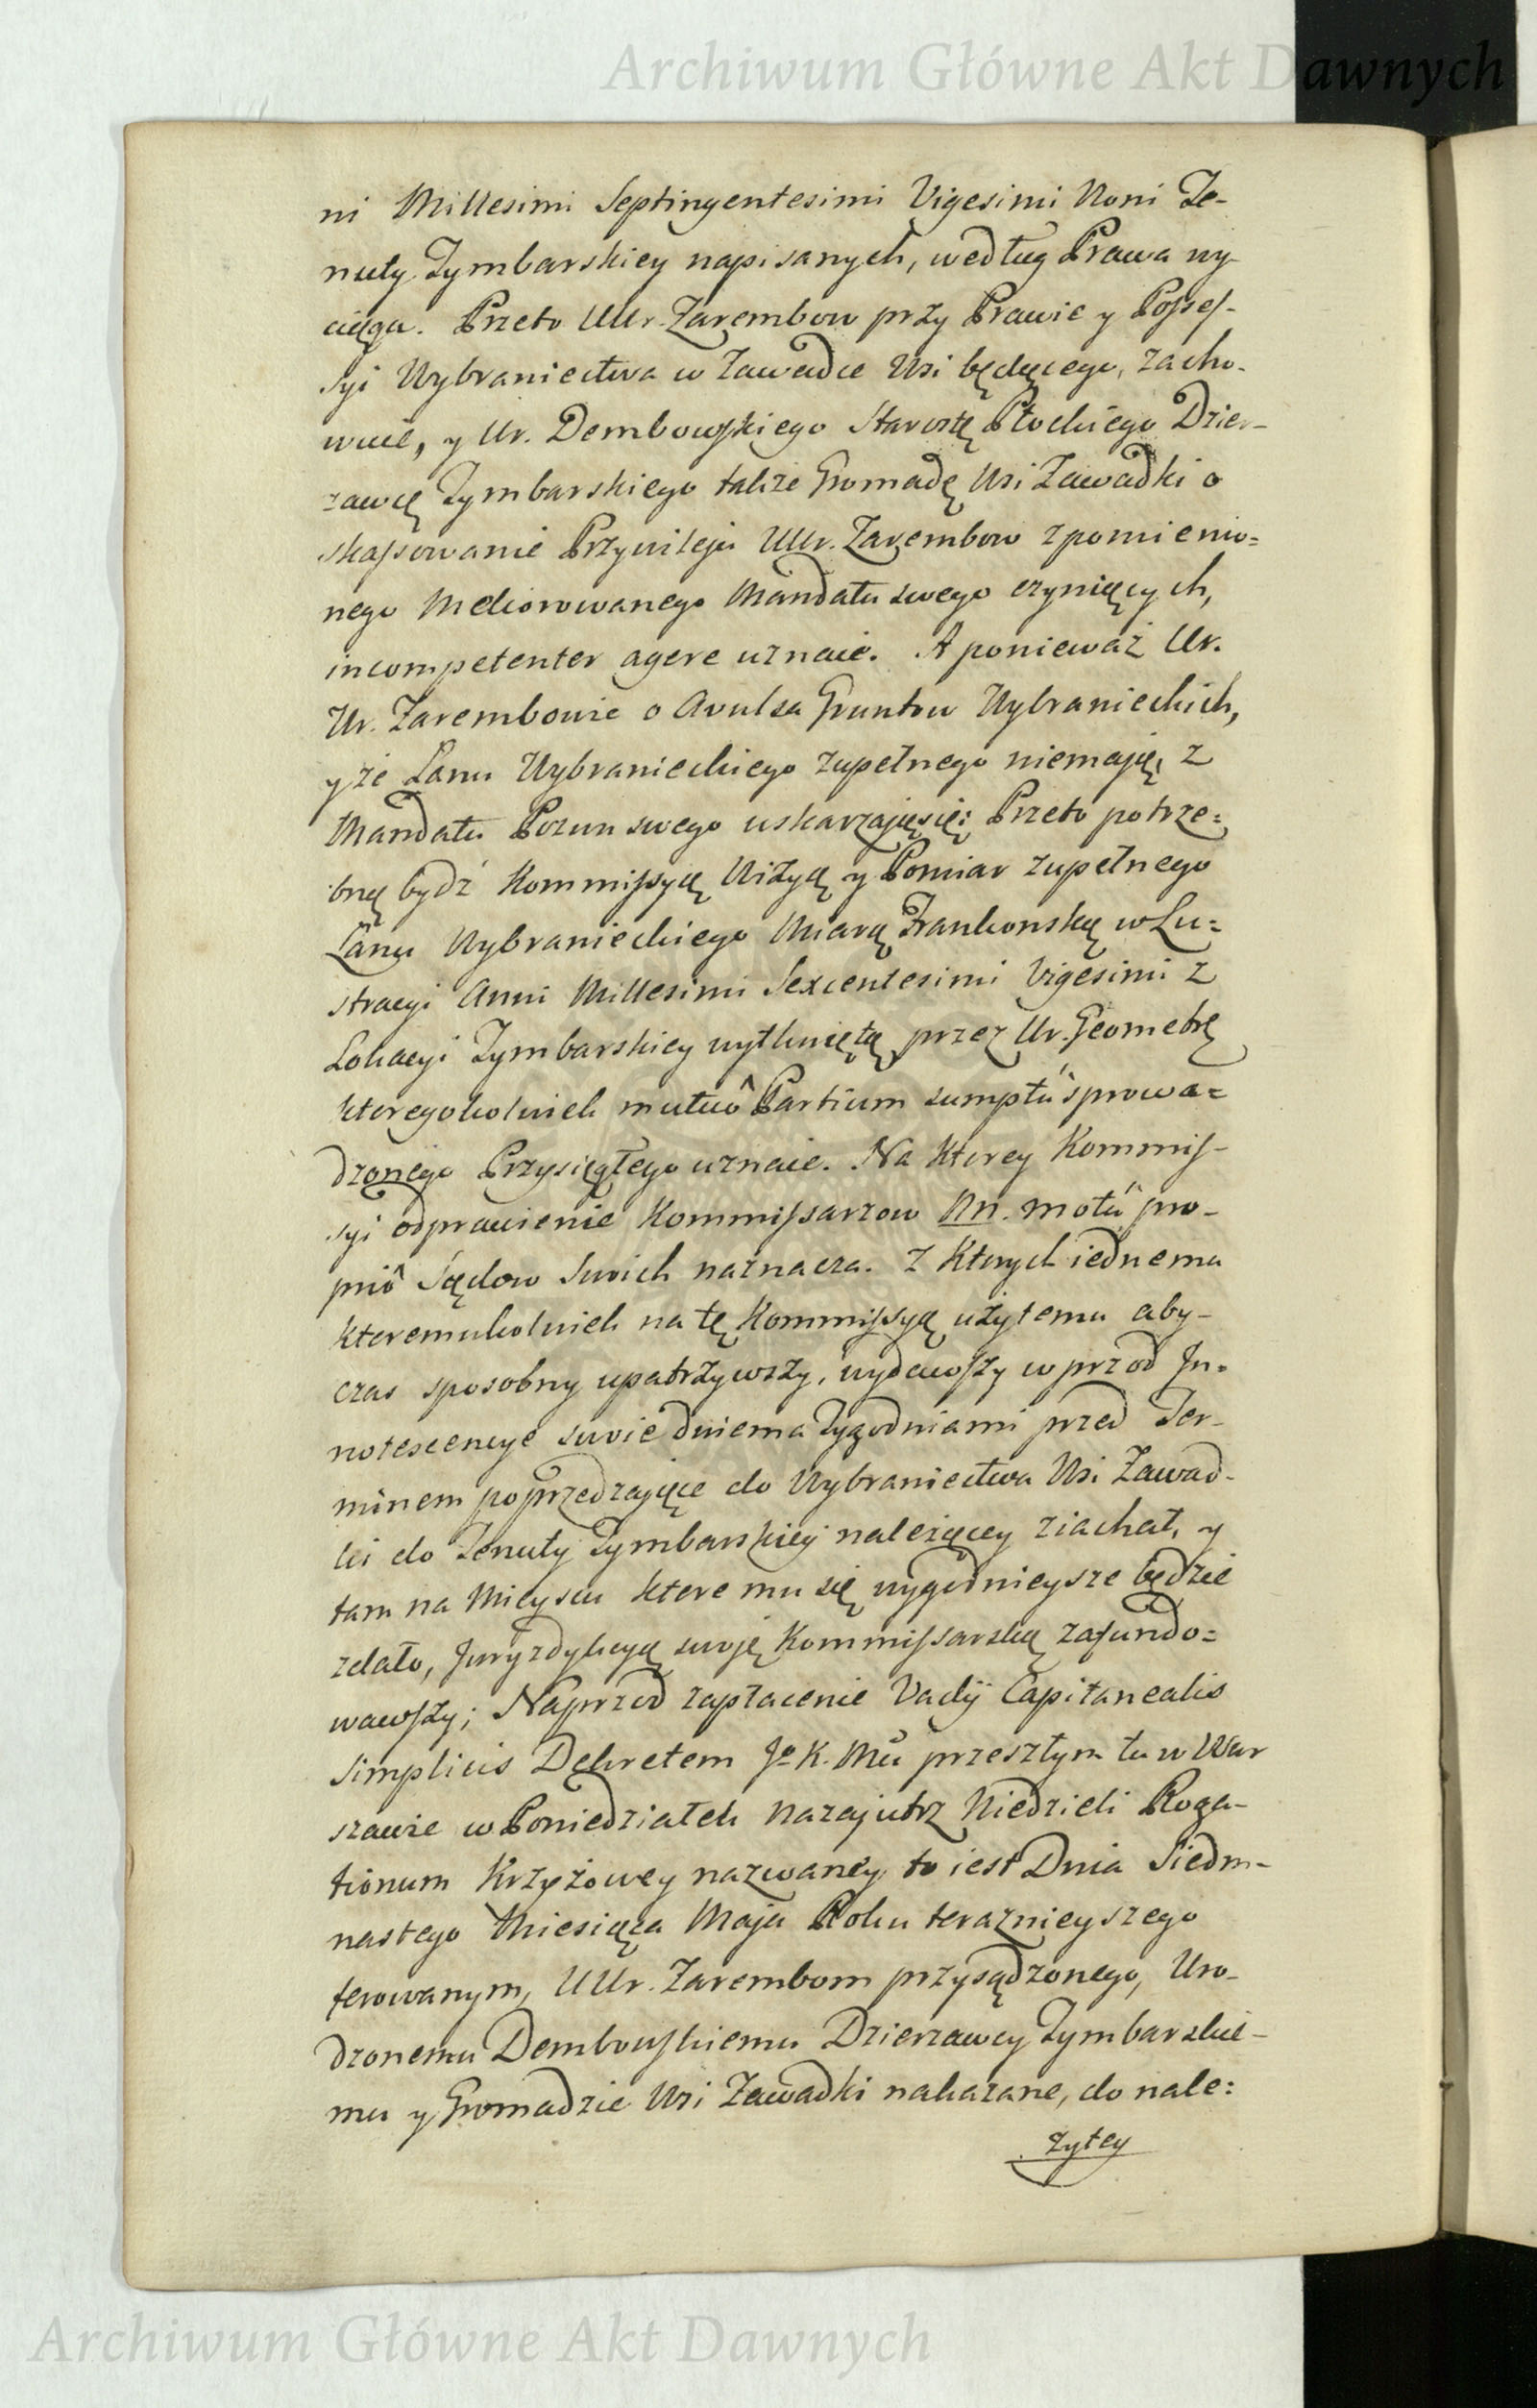 Archiwum Główne Akt Dawnych
ni Millesimi Septingentesimi Vigesimi Noni Te-
nuty Tymbarskiey napisanych, według Prawa wy-
ciąga. Przeto UUr. Zarembow przy Prawie y Possess-
syi Wybraniectwa w Zawadce Wsi będącego, zacho-
wuie, y Ur. Dembowskiego Starostę Płockiego Dzier-
zawcę Tymbarskiego także Gromadę Wsi Zawadki o
skassowanie Przywileju UUr. Zarembow z pomienio=
nego Meliorowanego Mandatu swego czyniących,
incompetenter agere uznaie. A ponieważ Ur.
Ur. Zarembowie o Avulsa Gruntow Wybranieckich,
y że Łanu Wybranieckiego zupełnego niemaią, z
Mandatu Pozwu swego uskarzaiąsię: Przeto potrze=
bną bydź Kommissyą Wizyą y Pomiar zupełnego
Łanu Wybranieckiego Miarą Frankonską w Lu=
stracyi Anni Millesimi Sexcentesimi Vigesimi z
Lokacyi Tymbarskiey wytkniętą przez Ur. Geometrę
ktoregokolwiek mutuô Partium sumptû sprowa=
dzonego Przysięgłego uznaie. Na ktorey Kommis-
syi odprawienie Kommissarzow NN. motû pro-
priô Sądow Swoich naznacza. Z Ktorych iednemu
ktoremukolwiek na tę Kommissyą użytemu aby-
czas sposobny upatrzywszy, wydawszy wprzod In=
notescencye swoie dwiema Tygodniami przed Ter-
minem poprzedzaiące do Wybraniectwa Wsi Zawad-
ki do Tenuty Tymbarskiey należącey ziachał, y
tam na Mieyscu ktore mu się wygodnieysze będzie
zdało, Juryzdykcyą swoię Kommissarską zafundo=
wawszy; Naprzod zapłacenie Vadij Capitanealis
Simplicis Dekretem Jo K. Mci przeszłym tu w War
szawie w Poniedziałek nazajutrz Niedzieli Roga-
tionum Krzyżowey nazwaney to iest Dnia Siedm-
nastego Miesiąca Maja Roku teraznieyszego
ferowanym, UUr. Zarembom przysądzonego, Uro-
dzonemu Dembowskiemu Dzierzawcy Tymbarskie-
mu y Gromadzie Wsi Zawadki nakazane, do nale:
żytey
Archiwum Główne Akt Dawnych